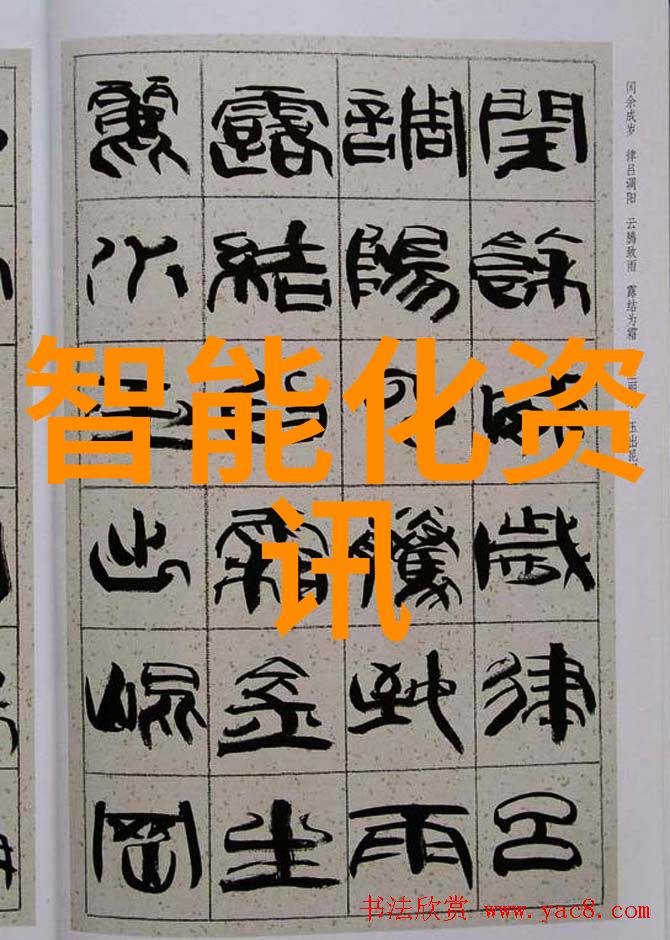 闰余成岁 律吕调阳 云腾致雨 露结为霜 丽 玉出昆
閏餘成歲律呂
調陽云騰致雨
露結為霜金生
麗水玉出崐岡
智能化资
讯
书法欣赏 www.yac8.com